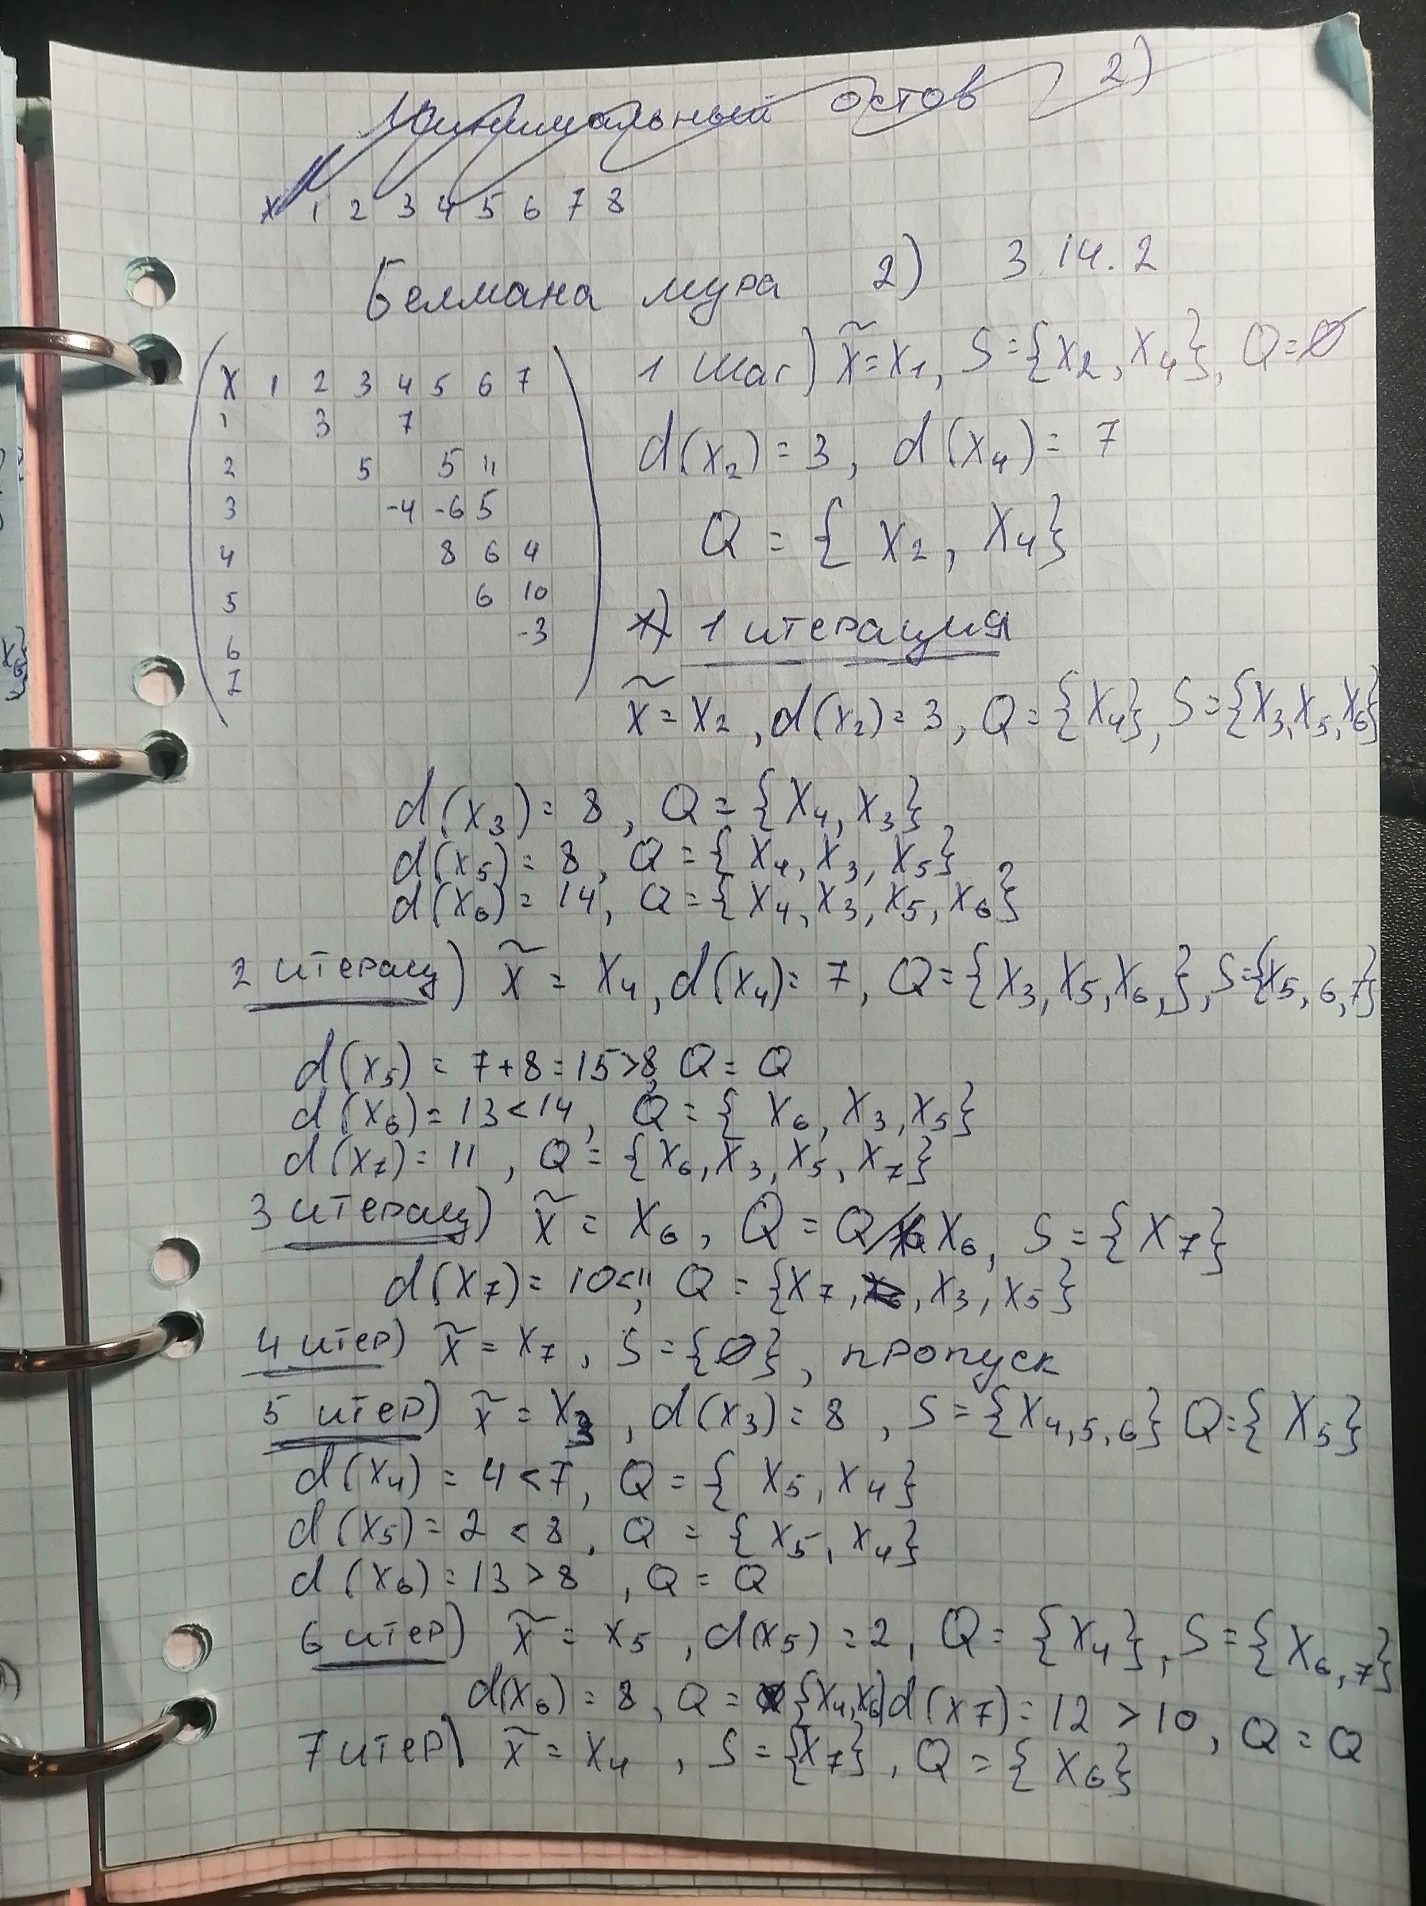 Минимальный остов 2)
X 1 2 3 4 5 6 7 8
Белмана мура 2) 3.14.2
X 1 2 3 4 5 6 7
1 3 7
2 5 5 11
3 -4 -6 5
4 8 6 4
5 6 10
6 -3
7
1 шаг) x̃ = x₁, S = {x₂, x₄}, Q = ∅
d(x₂) = 3, d(x₄) = 7
Q = {x₂, x₄}
1 итерация
x̃ = x₂, d(x₂) = 3, Q = {x₄}, S = {x₃, x₅, x₆}
d(x₃) = 8, Q = {x₄, x₃},
d(x₅) = 8, Q = {x₄, x₃, x₅}
d(x₆) = 14, Q = {x₄, x₃, x₅, x₆}
2 итерац) x̃ = x₄, d(x₄) = 7, Q = {x₃, x₅, x₆,}, S = {x₅, ₆, ₇}
d(x₅) = 7+8 = 15 > 8, Q = Q
d(x₆) = 13 < 14, Q = {x₆, x₃, x₅}
d(x₇) = 11, Q = {x₆, x₃, x₅, x₇}
3 итерац) x̃ = x₆, Q = Q / x₆, S = {x₇}
d(x₇) = 10 < 11, Q = {x₇, x₃, x₅}
4 итер) x̃ = x₇, S = {∅}, пропуск
5 итер) x̃ = x₃, d(x₃) = 8, S = {x₄, ₅, ₆} Q = {x₅}
d(x₄) = 4 < 7, Q = {x₅, x₄}
d(x₅) = 2 < 8, Q = {x₅, x₄}
d(x₆) = 13 > 8, Q = Q
6 итер) x̃ = x₅, d(x₅) = 2, Q = {x₄}, S = {x₆, ₇}
d(x₆) = 8, Q = {x₄, x₆} d(x₇) = 12 > 10, Q = Q
7 итер) x̃ = x₄, S = {x₇}, Q = {x₆}